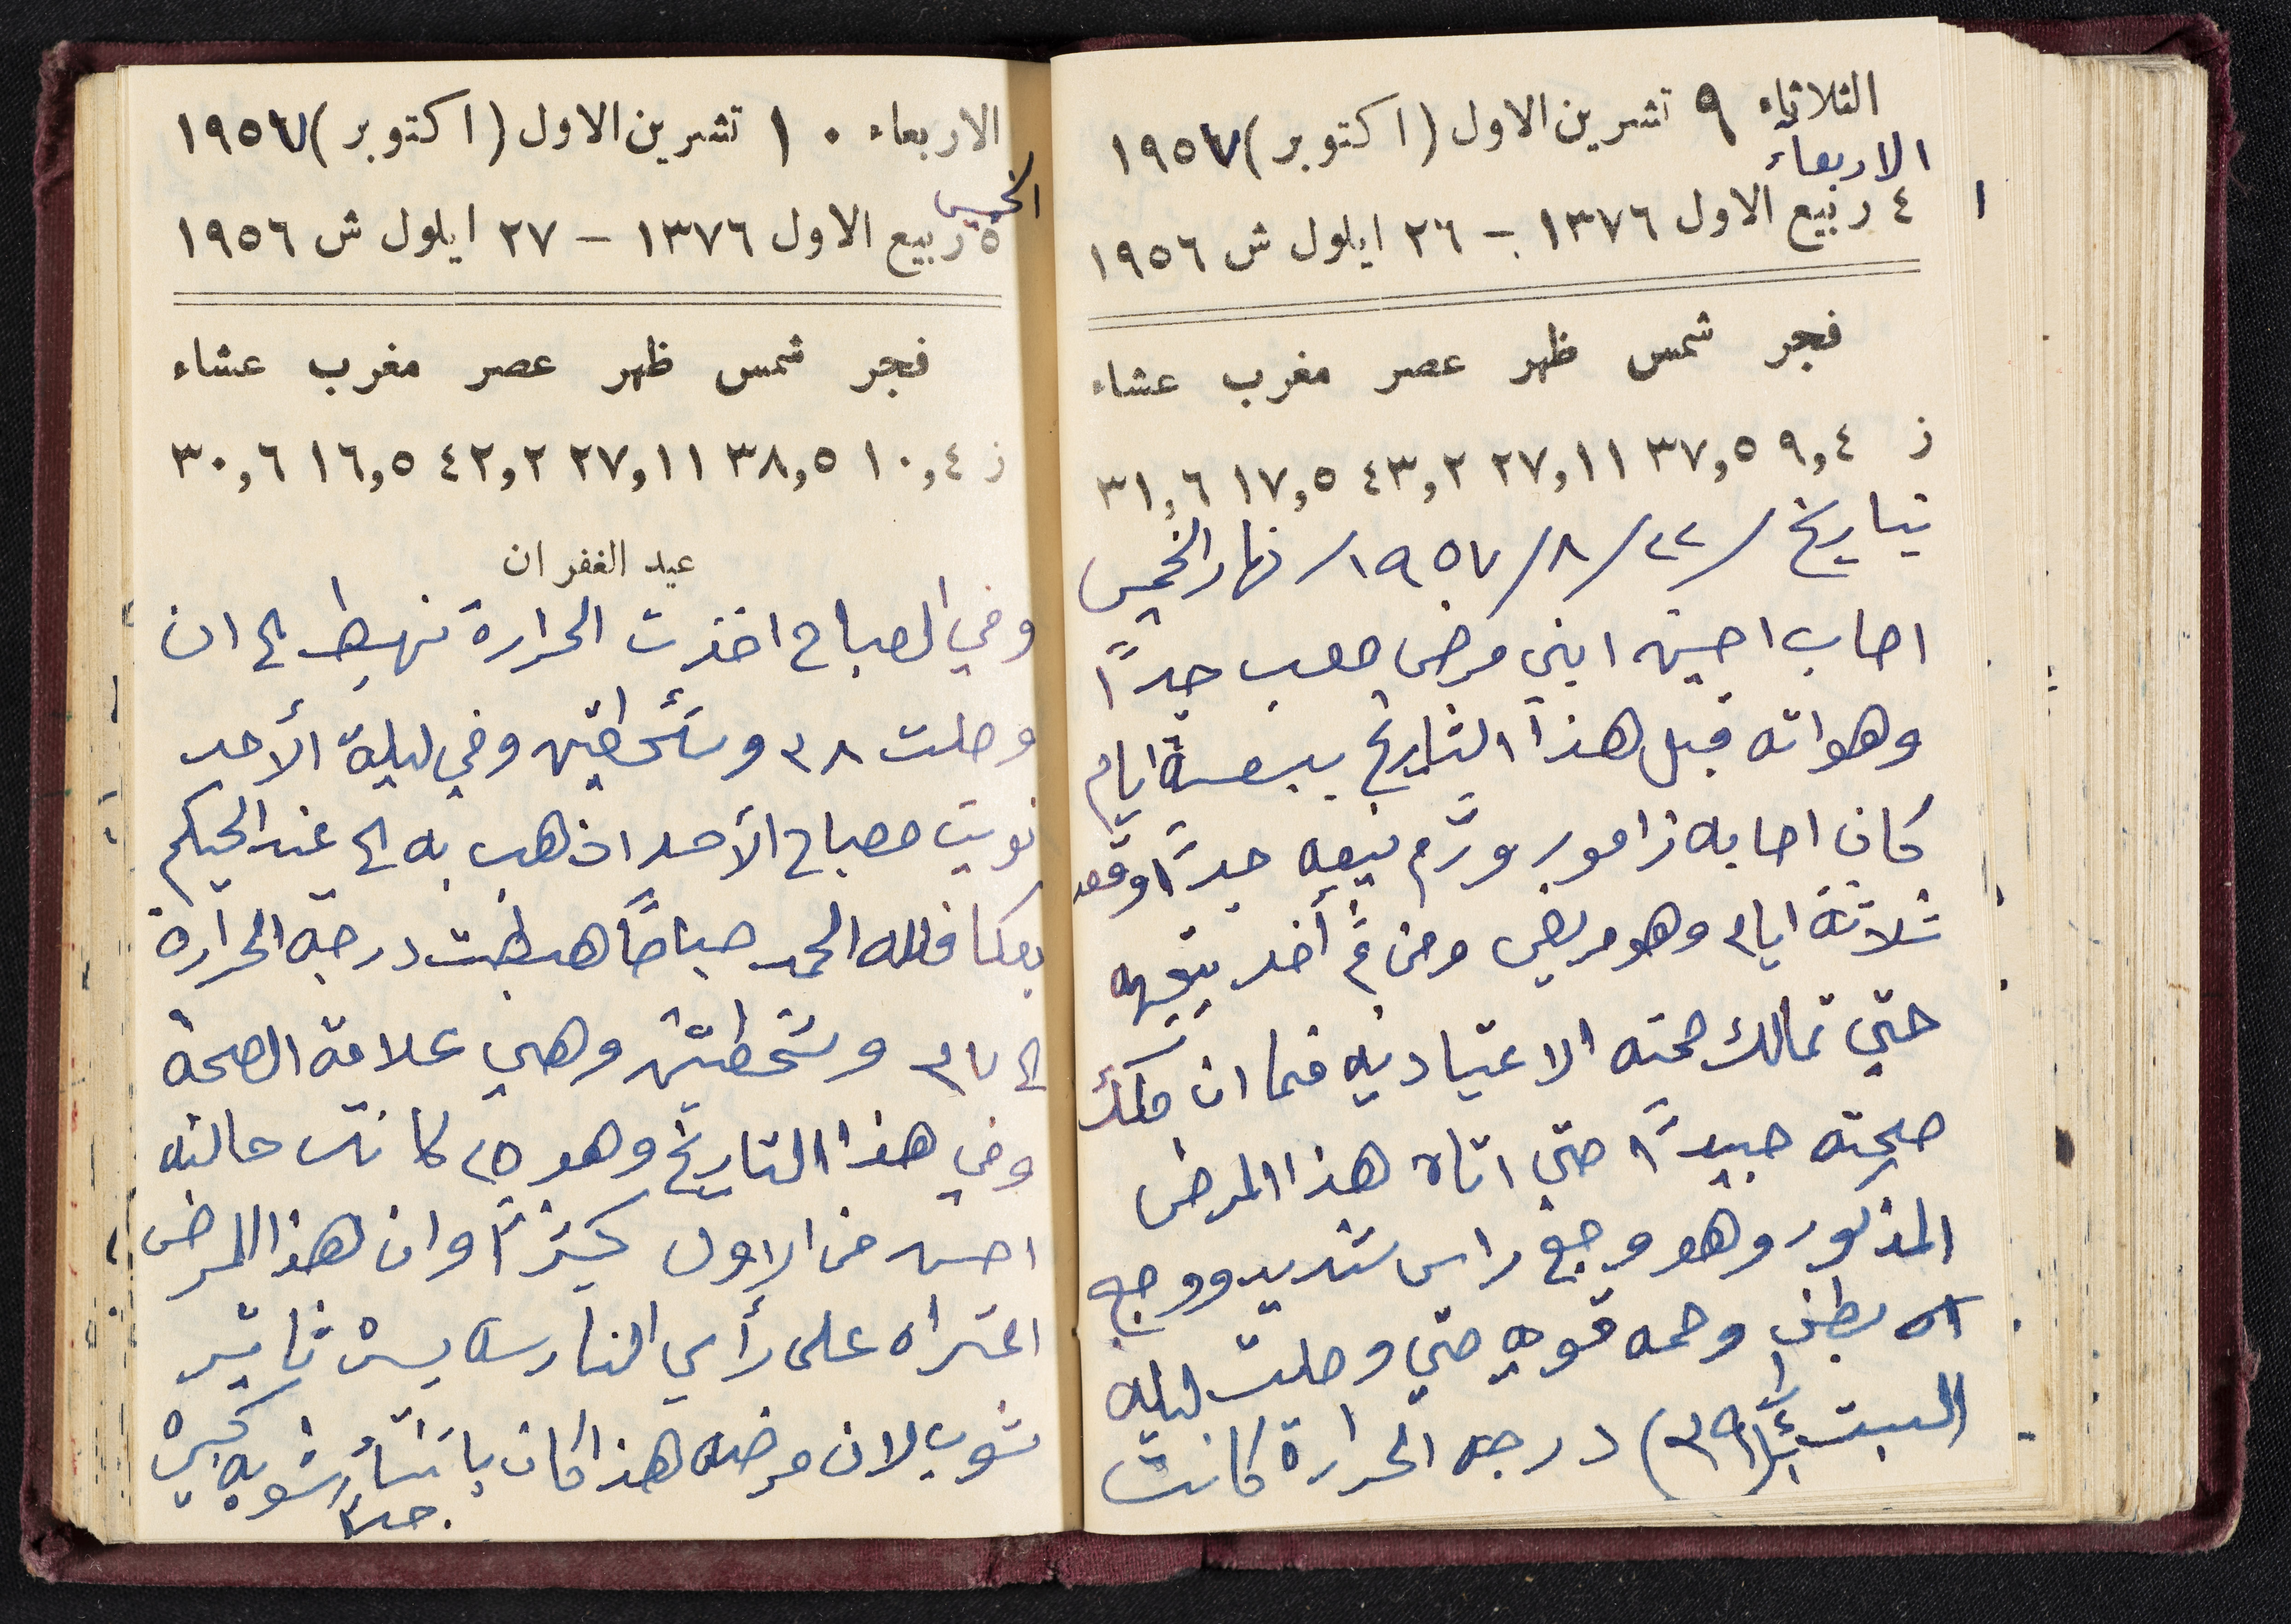 الثلاثاء ٩ تشرين الاول (اكتوبر) ١٩٥٧
الاربعاء
٤ ربيع الاول ١٣٧٦ - ٢٦ ايلول ش ١٩٥٦
فجر شمس ظهر عصر مغرب عشاء
ز ٩,٤ ٣٧,٥ ٢٧,١١ ٤٣,٢ ١٧,٥ ٣١,٦
بتاريخ /٢٢/٨/١٩٥٧/ نهار الخميس
اصاب ابني مرض صعب جداً
وهو انه قبل هذا التاريخ ايام
كان اصابه ورّم جداً وقعد
ثلاثة ايام وهو مريض ومن ثم أخذ
حتى تمالك صحته الاعتياديه فما ان
صحته جيداً حتى اتاه هذا المرض
المذكور وهو وجع راس شديد ووجع
بطن وحمه قويه حتى وصلت ليله
السبت (٣٩) درجه الحرارة كانت
الاربعاء ١٠ تشرين الاول (اكتوبر) ١٩٥٧
الخميس
٥ ربيع الاول ١٣٧٦ - ٢٧ ايلول ش ١٩٥٦
فجر شمس ظهر عصر مغرب عشاء
ز ١٠,٤ ٣٨,٥ ٢٧,١١ ٤٢,٢ ١٦,٥ ٣٠,٦
عيد الغفران
وفي الصباح اخذت الحرارة تهبط الى ان
وصلت ٣٨ وشحطتين وفي ليلة الأحد
نويت صباح الأحد اذهب به الى عند الحكيم
بعكا فلله الحمد صباحاً هبطت درجة الحرارة
الى ٣٧ وشحطتين وهي علامة الصحة
وفي هذا التاريخ وهو ٢٥ كانت حالته
احسن من الاول كثيراً وان هذا المرض
اعتراه على رأي الناس تاثير
شوب لان مرضه هذا كان شوبه كبيره
جداً.